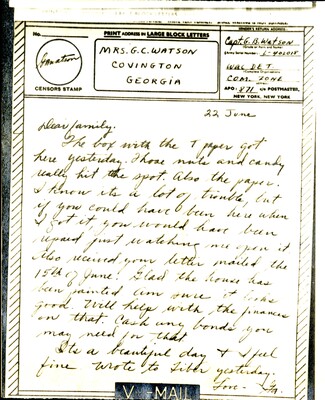 No.
PRINT ADDRESS IN LARGE BLOCK LETTERS
SENDER'S RETURN ADDRESS
GBWatson
CENSORS STAMP
MRS. G.C. WATSON
COVINGTON
GEORGIA
Capt. G.B. WATSON
WAC DET
COM ZONE
APO: 871 C/o POSTMASTER,
NEW YORK, NEW YORK
22 June
Dear family.
The box with the T paper got
here yesterday. Those nuts and candy
really hit the spot. Also the paper.
I know its a lot of trouble, but
if you could have been here when
I got it, you would have been
repaid just watching me open it
Also received your letter mailed the
15th of June. Glad the house has
been painted am sure it looks
good Will help with the finances
on that. Cash any bonds you
may need for that
Its a beautiful day & I feel
fine Wrote to Liber yesterday.
Love -
V - MAIL